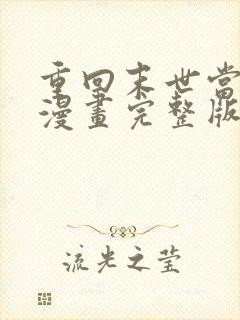 重回末世當
漫畫完整版
流光之莹